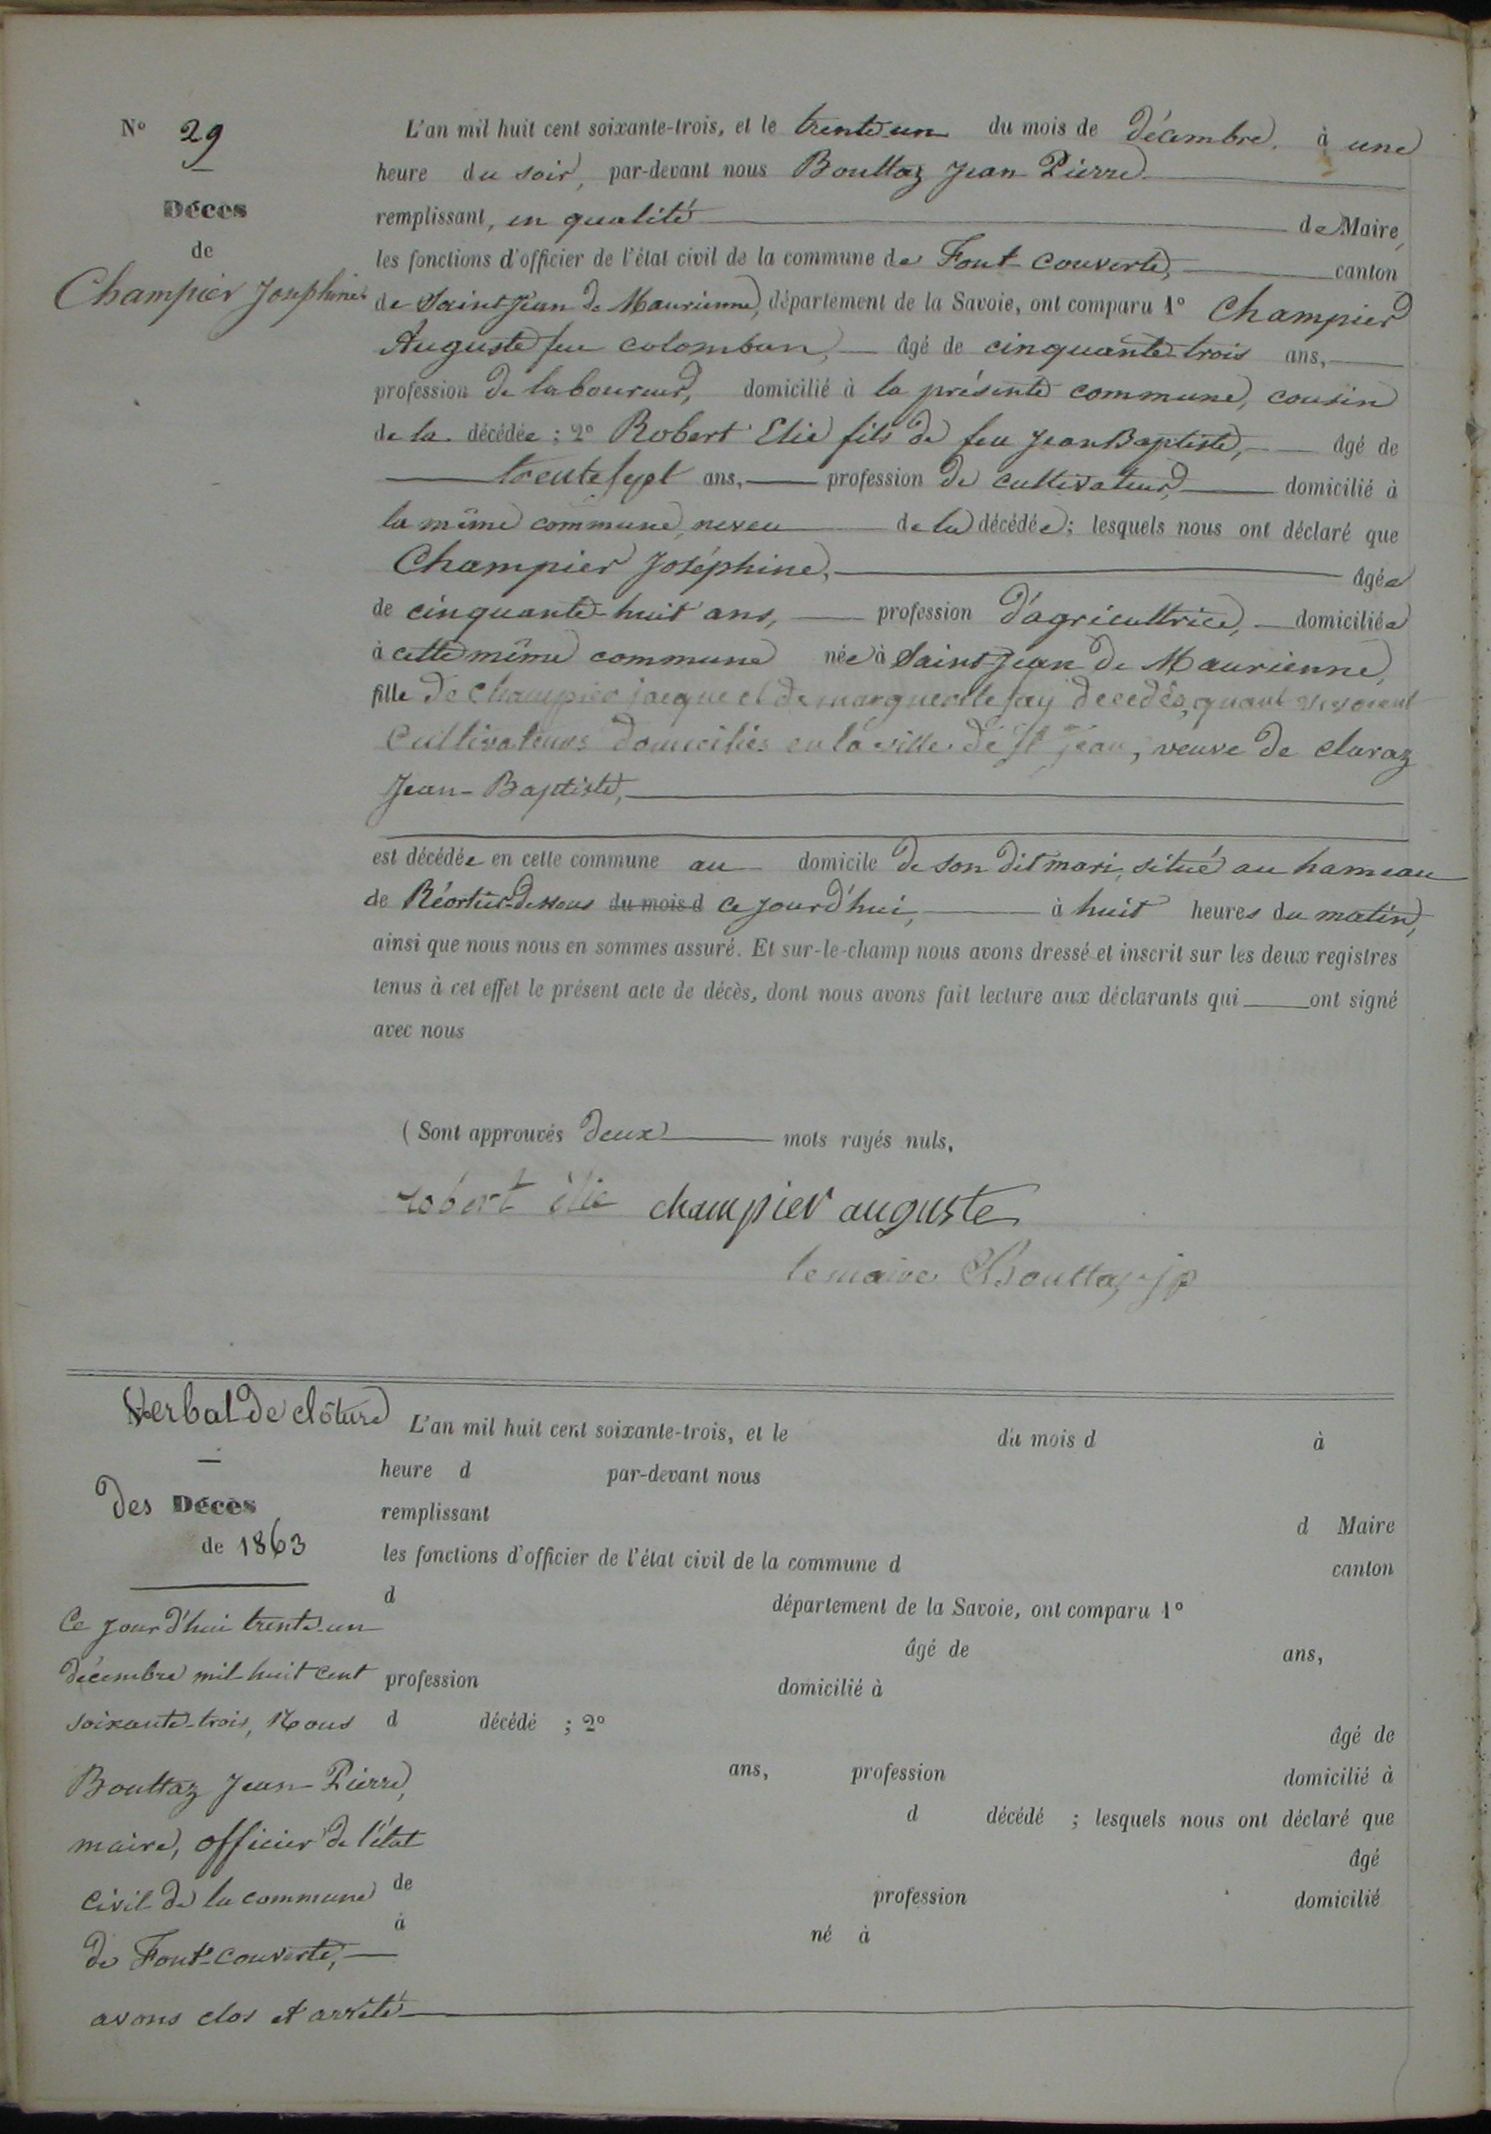 N° 29
Décès
de
Champier Joséphine
L'an mil huit cent soixante-trois, et le trente-un du mois de décembre, à une
heure du soir, par-devant nous Bouttaz Jean Pierre
remplissant, en qualité de Maire,
les fonctions d'officier de l'état civil de la commune de Font-couverte, canton
de Saint Jean de Maurienne, département de la Savoie, ont comparu 1° Champier
Auguste feu colomban, âgé de cinquante-trois ans,
profession de laboureur, domicilié à la présente commune, cousin
de la décédée ; 2° Robert Elie fils de feu Jean Baptiste, âgé de
trente sept ans, profession de cultivateur, domicilié à
la même commune, neveu de la décédée ; lesquels nous ont déclaré que
Champier Joséphine, âgée
de cinquante-huit ans, profession d'agricultrice, domiciliée
à cette même commune née à Saint Jean de Maurienne,
fille de Champier jacque et de marguerite fay decedés, quant vivoient
Cultivateurs domiciliés en la ville de St jean, veuve de claraz
Jean-Baptiste,
est décédée en cette commune au domicile de son dit mari, situé au hameau
de Réortier-Dessous du mois d ce jourd'hui, à huit heures du matin,
ainsi que nous nous en sommes assuré. Et sur-le-champ nous avons dressé et inscrit sur les deux registres
tenus à cet effet le présent acte de décès, dont nous avons fait lecture aux déclarants qui ont signé
avec nous
(Sont approuvés deux mots rayés nuls,
robert élie champier auguste
le maire Bouttaz jp
Verbal de clôture
des Décès
de 1863
Ce jourd'hui trente-un
décembre mil huit cent
soixante-trois, Nous
Bouttaz Jean-Pierre,
maire, officier de l'état
civil de la commune
de Font-couverte,
avons clos et arrêté
L'an mil huit cent soixante-trois, et le du mois d à
heure d par-devant nous
remplissant d Maire
les fonctions d'officier de l'état civil de la commune d canton
d département de la Savoie, ont comparu 1°
âgé de ans,
profession domicilié à
d décédé ; 2° âgé de
ans, profession domicilié à
d décédé ; lesquels nous ont déclaré que
âgé
de profession domicilié
à né à